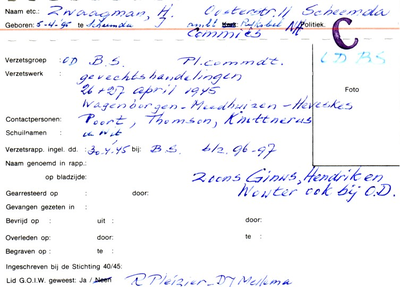 Naam etc.: Zwaagman, H. Oosterstr. 11 Scheemda
Geboren: 5-4-95 te Scheemda Politiek.
Commies NH C
Verzetsgroep : OD B.S. Pl. commdt. OD BS
Verzetswerk : gevechtshandelingen
26+27 april 1945
Wagenborgen - Meedhuizen - Heveskes
Foto
Contactpersonen: Poort, Thomson, Knottnerus
Schuilnamen :
Verzetsrapp. ingel. dd.: 30-4-45 bij: B.S. blz. 96-97
Naam genoemd in rapp. :
op bladzijde: Zoons Ginus, Hendrik en
Gearresteerd op : door: Wouter ook bij O.D.
Gevangen gezeten in :
Bevrijd op : uit : door:
Overleden op: door: te :
Begraven op : te :
Ingeschreven bij de Stichting 40/45:
Lid G.O.I.W. geweest: Ja / Neen R Pleizier - DJ Mellema